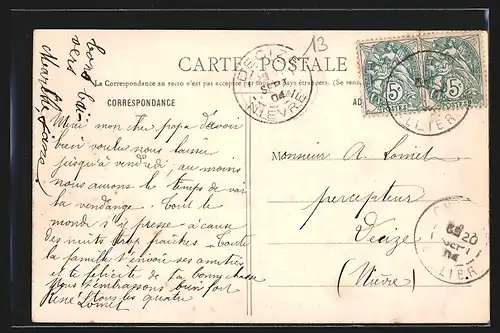 bons bai-
vers
13
CARTE POSTALE
La Correspondance au recto n'est pas acceptée par tous les pays étrangers. (Se rens
CORRESPONDANCE
AD
DECIZE
SEPT
04
NIÈVRE
5c
5c
POSTES
ALLIER
Merci mon cher papa d'avoir
bien voulu nous laisser
jusqu'à vendredi ; au moins
nous aurons le temps de voir
la vendange. Tout le
monde s'y presse à cause
des nuits trop fraîches. Toute
la famille t'envoie ses amitiés
et te félicite de ta bonne chasse
Nous t'embrassons bien fort
tous les quatre
René Lomet
Monsieur A. Lomet
percepteur
Decize
(Nièvre)
20
SEPT
04
ALLIER